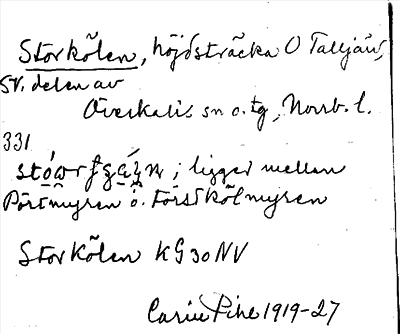 Storkölen, höjdsträcka O Talljärv,
sv. delen av
Överkalix sn o. tg, Norrb. l.
331
; ligger mellan
Pörtmyren o. Förstkölmyren
Storkölen KG30NV
Carin Pihl 1919-27